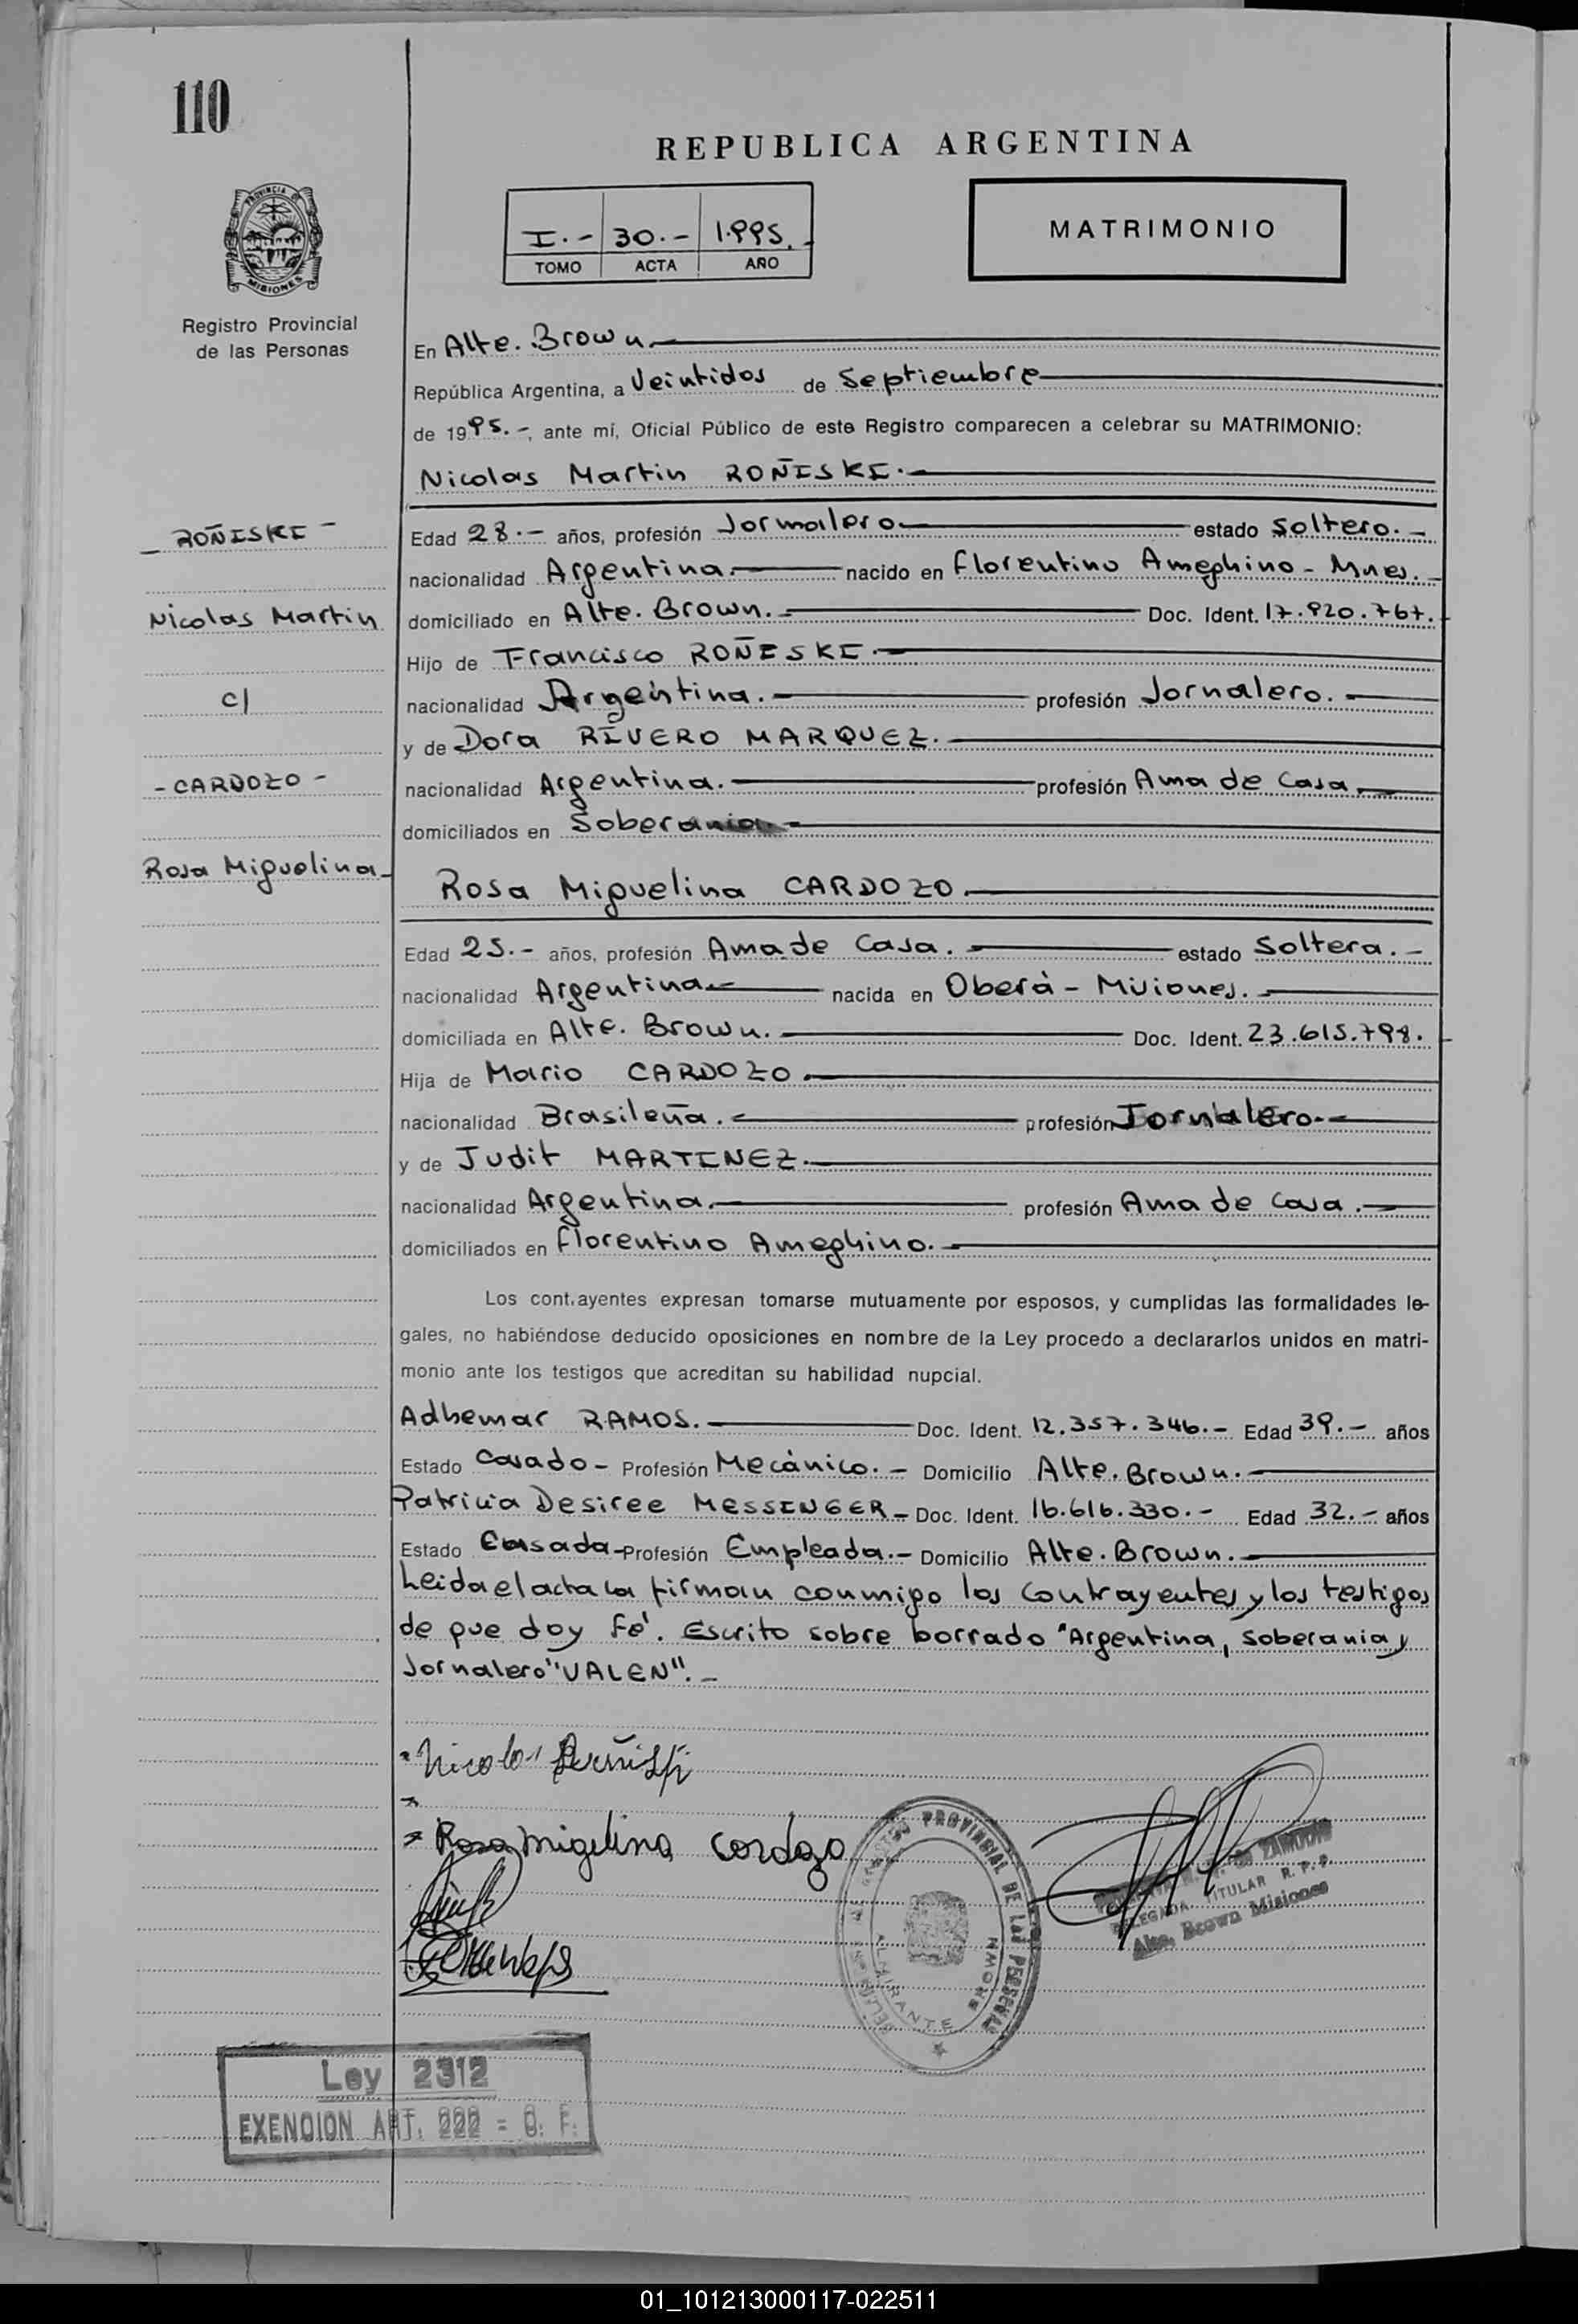 110
REPUBLICA ARGENTINA
I.- 30.- 1.995.-
TOMO ACTA AÑO
MATRIMONIO
PROVINCIA DE
MISIONES
Registro Provincial
de las Personas
En Alte. Brown.
República Argentina, a Veintidos de Septiembre
de 1995.-, ante mí, Oficial Público de este Registro comparecen a celebrar su MATRIMONIO:
Nicolas Martin ROÑISKI.-
- ROÑISKI -
Edad 28.- años, profesión Jornalero estado Soltero.-
nacionalidad Argentina. nacido en Florentino Ameghino - Mnes.-
Nicolas Martin
domiciliado en Alte. Brown.- Doc. Ident. 17.920.767.-
Hijo de Francisco ROÑESKI.-
c/
nacionalidad Argentina.- profesión Jornalero.-
y de Dora RIVERO MARQUEZ.-
- CARDOZO -
nacionalidad Argentina.- profesión Ama de Casa.-
domiciliados en Soberania.-
Rosa Miguelina-
Rosa Miguelina CARDOZO.-
Edad 25.- años, profesión Ama de Casa.- estado Soltera.-
nacionalidad Argentina.- nacida en Oberà - Misiones.-
domiciliada en Alte. Brown.- Doc. Ident. 23.615.798.-
Hija de Mario CARDOZO.-
nacionalidad Brasileña.- profesión Jornalero.-
y de Judit MARTINEZ.-
nacionalidad Argentina.- profesión Ama de Casa.-
domiciliados en Florentino Ameghino.-
Los cont.ayentes expresan tomarse mutuamente por esposos, y cumplidas las formalidades le-
gales, no habiéndose deducido oposiciones en nombre de la Ley procedo a declararlos unidos en matri-
monio ante los testigos que acreditan su habilidad nupcial.
Adhemar RAMOS.- Doc. Ident. 12.357.346.- Edad 39.- años
Estado Casado - Profesión Mecànico.- Domicilio Alte. Brown.-
Patricia Desiree MESSINGER - Doc. Ident. 16.616.330.- Edad 32.- años
Estado Casada - Profesión Empleada.- Domicilio Alte. Brown.-
Leida el acta la firman conmigo los Contrayentes y los testigos
de que doy Fé. Escrito sobre borrado "Argentina, Soberania y
Jornalero" "VALEN".-
Nicolas Roñiski
Rosa migelina cordozo
REGISTRO PROVINCIAL DE LAS PERSONAS
ALMIRANTE BROWN
DE ZAMUDIO
DELEGADA TITULAR R. P. P.
Alte. Brown Misiones
Ley 2312
EXENCION ART. 222 = C. F.
01_101213000117-022511